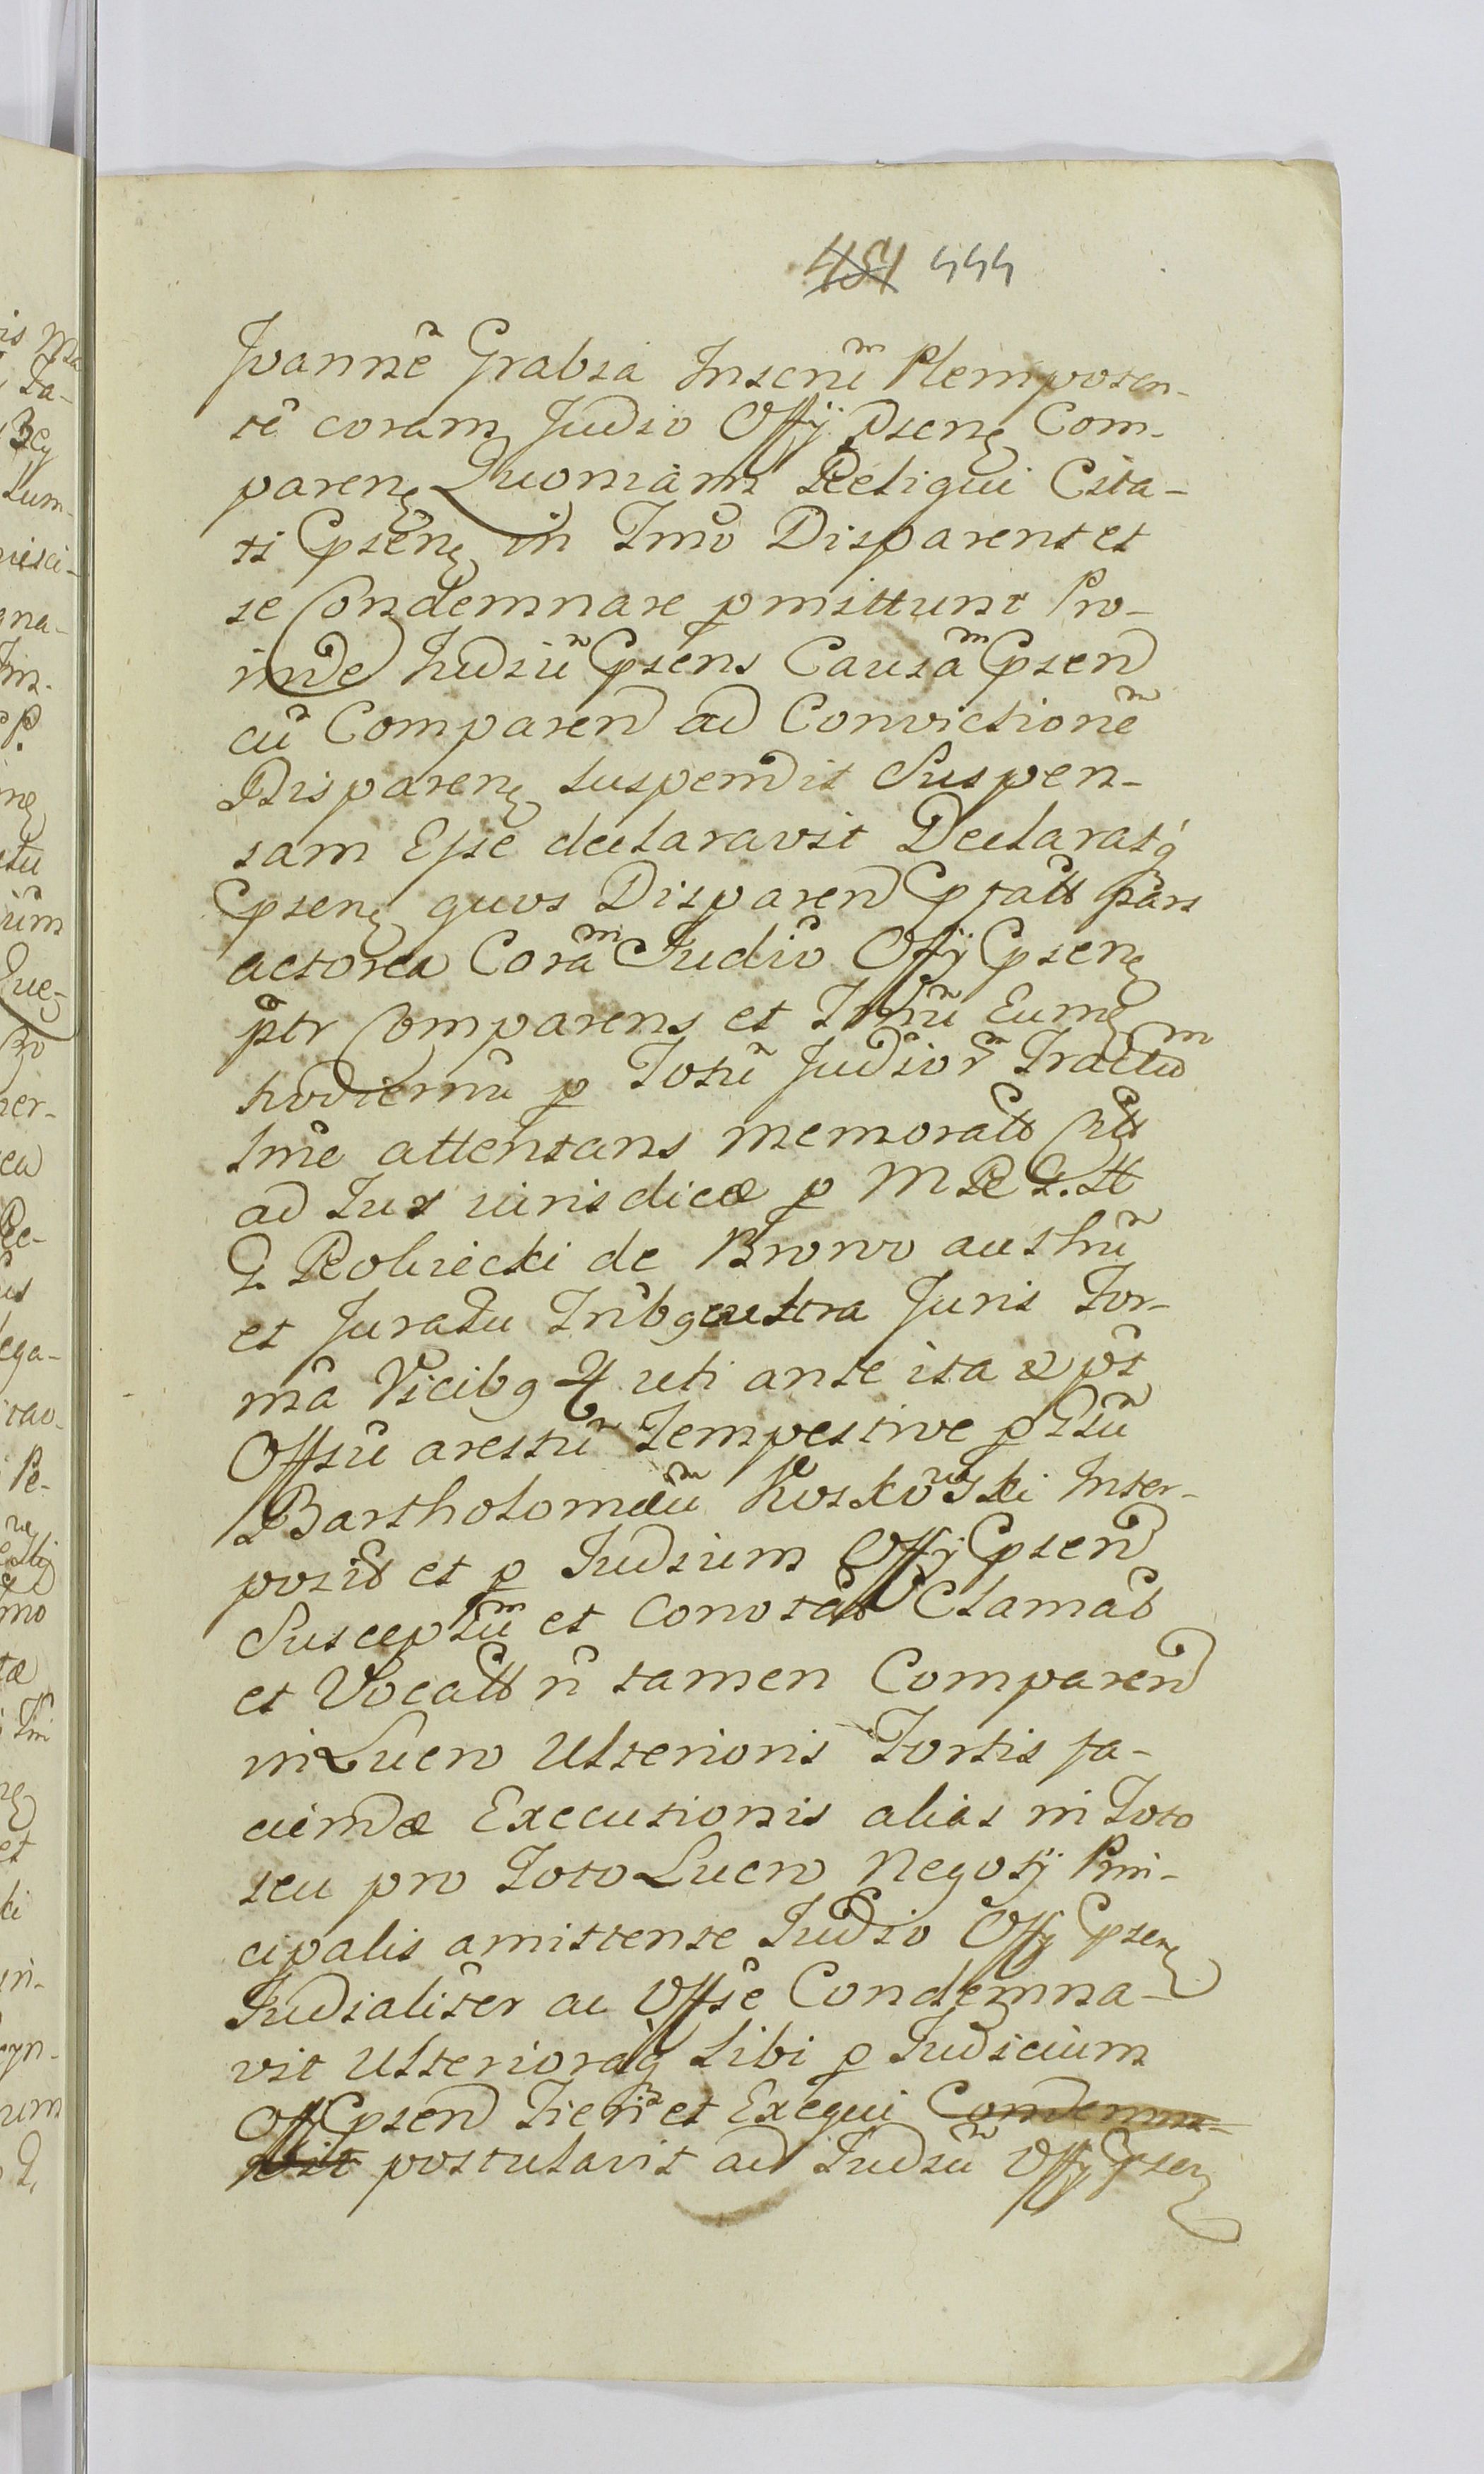 451 444
Joannē Grabia Inscnū Plempoten-
tē coram Judio Offÿ Psene Com-
parene Quoniam Reliqui Cita-
ti Cpsene in Tmō Disparent et
se Condemnare pmittunt Pro-
inde Judiū Cpsens Causā Cpsen
cū Comparen ad Convictionē
Disparene suspendit Suspen-
sam Esse declaravit Declaratq
Cpsene quos Disparen pars
actorea Corā Judiō Offÿ Cpsene
ptr Comparens et Tmū Eume
hodiernū p Totū Judior Tractū
Tme attentans memoratt
ad Jus
de Brovo austrū
et Juratū Tribq extra Juris For-
mā Vicibq uti ante ita & pt
Offsū arestū Tempestive p
Bartholomæū Koskowski Inter-
posit et p Judium Offÿ Cpsen
Susceptū et Conotat Clamat
et Vocatt ñ tamen Comparen
in Lucro Ulterioris Fortis fa-
ciendæ Executionis alias in Toto
seu pro Toto Lucro Negotÿ Prin-
cipalis amittente Judio Offÿ Cpsene
Judialiter ac Offse Condemna-
vit Ulterioraq Sibi p Judicium
Off Cpsen Fieri et Exequi Condemna-
vit postulavit ad Judiū Offÿ Cpsen